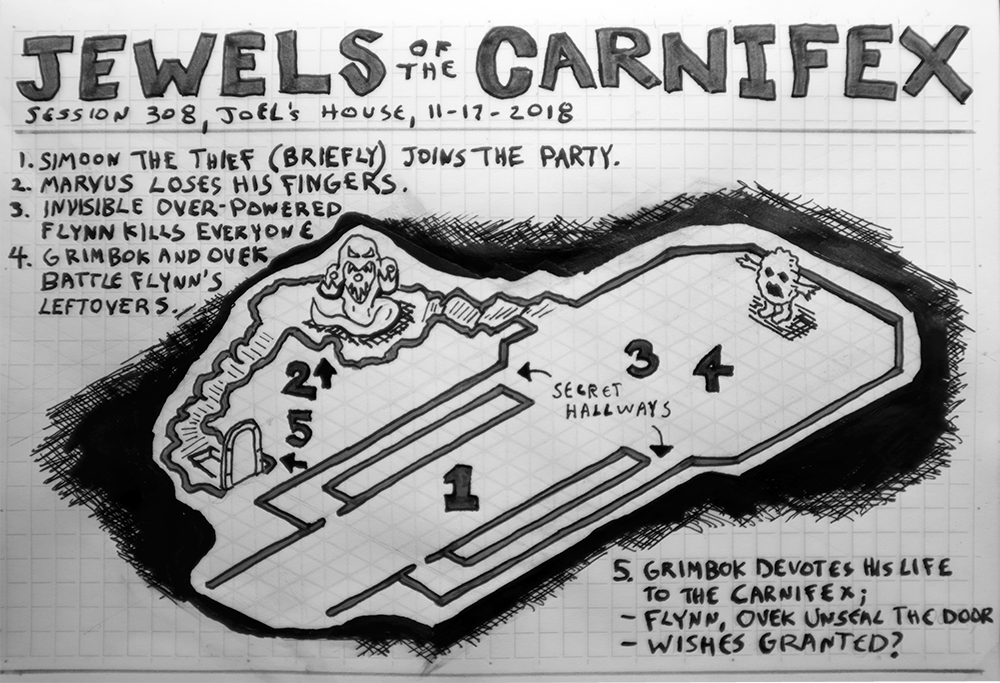 JEWELS OF THE CARNIFEX
SESSION 308, JOEL'S HOUSE, 11-17-2018
1. SIMOON THE THIEF (BRIEFLY) JOINS THE PARTY.
2. MARVUS LOSES HIS FINGERS.
3. INVISIBLE OVER-POWERED
FLYNN KILLS EVERYONE
4. GRIMBOK AND OVEK
BATTLE FLYNN'S
LEFTOVERS.
3
4
2
SECRET
HALLWAYS
5
1
5. GRIMBOK DEVOTES HIS LIFE
TO THE CARNIFEX;
- FLYNN, OVEK UNSEAL THE DOOR
- WISHES GRANTED?